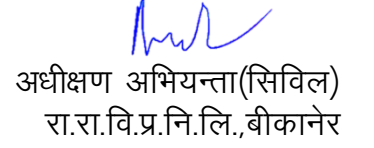 अधीक्षण अभियन्ता(सिविल)
रा.रा.वि.प्र.नि.लि.,बीकानेर